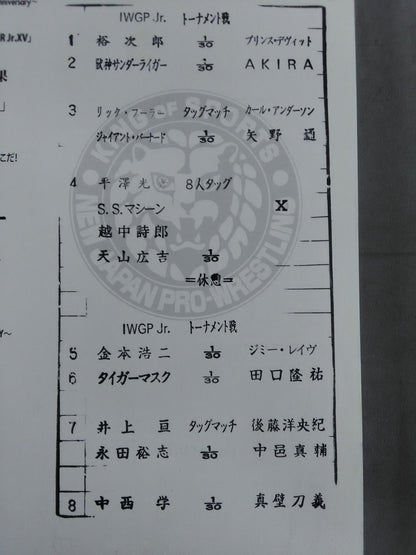 nniversary〜
R Jr.XV」
果
」
こだ!
〜
IWGP Jr. トーナメント戦
1 裕次郎 1/30 プリンス・デヴィット
2 獣神サンダーライガー 1/30 AKIRA
3 リック・フーラー タッグマッチ カール・アンダーソン
ジャイアント・バーナード 1/30 矢野通
4 平澤光 8人タッグ
S.S.マシーン X
越中詩郎
天山広吉 1/30
=休憩=
KING OF SPORTS
NEW JAPAN PRO-WRESTLING
IWGP Jr. トーナメント戦
5 金本浩二 1/30 ジミー・レイヴ
6 タイガーマスク 1/30 田口隆祐
7 井上亘 タッグマッチ 後藤洋央紀
永田裕志 1/30 中邑真輔
8 中西学 1/30 真壁刀義